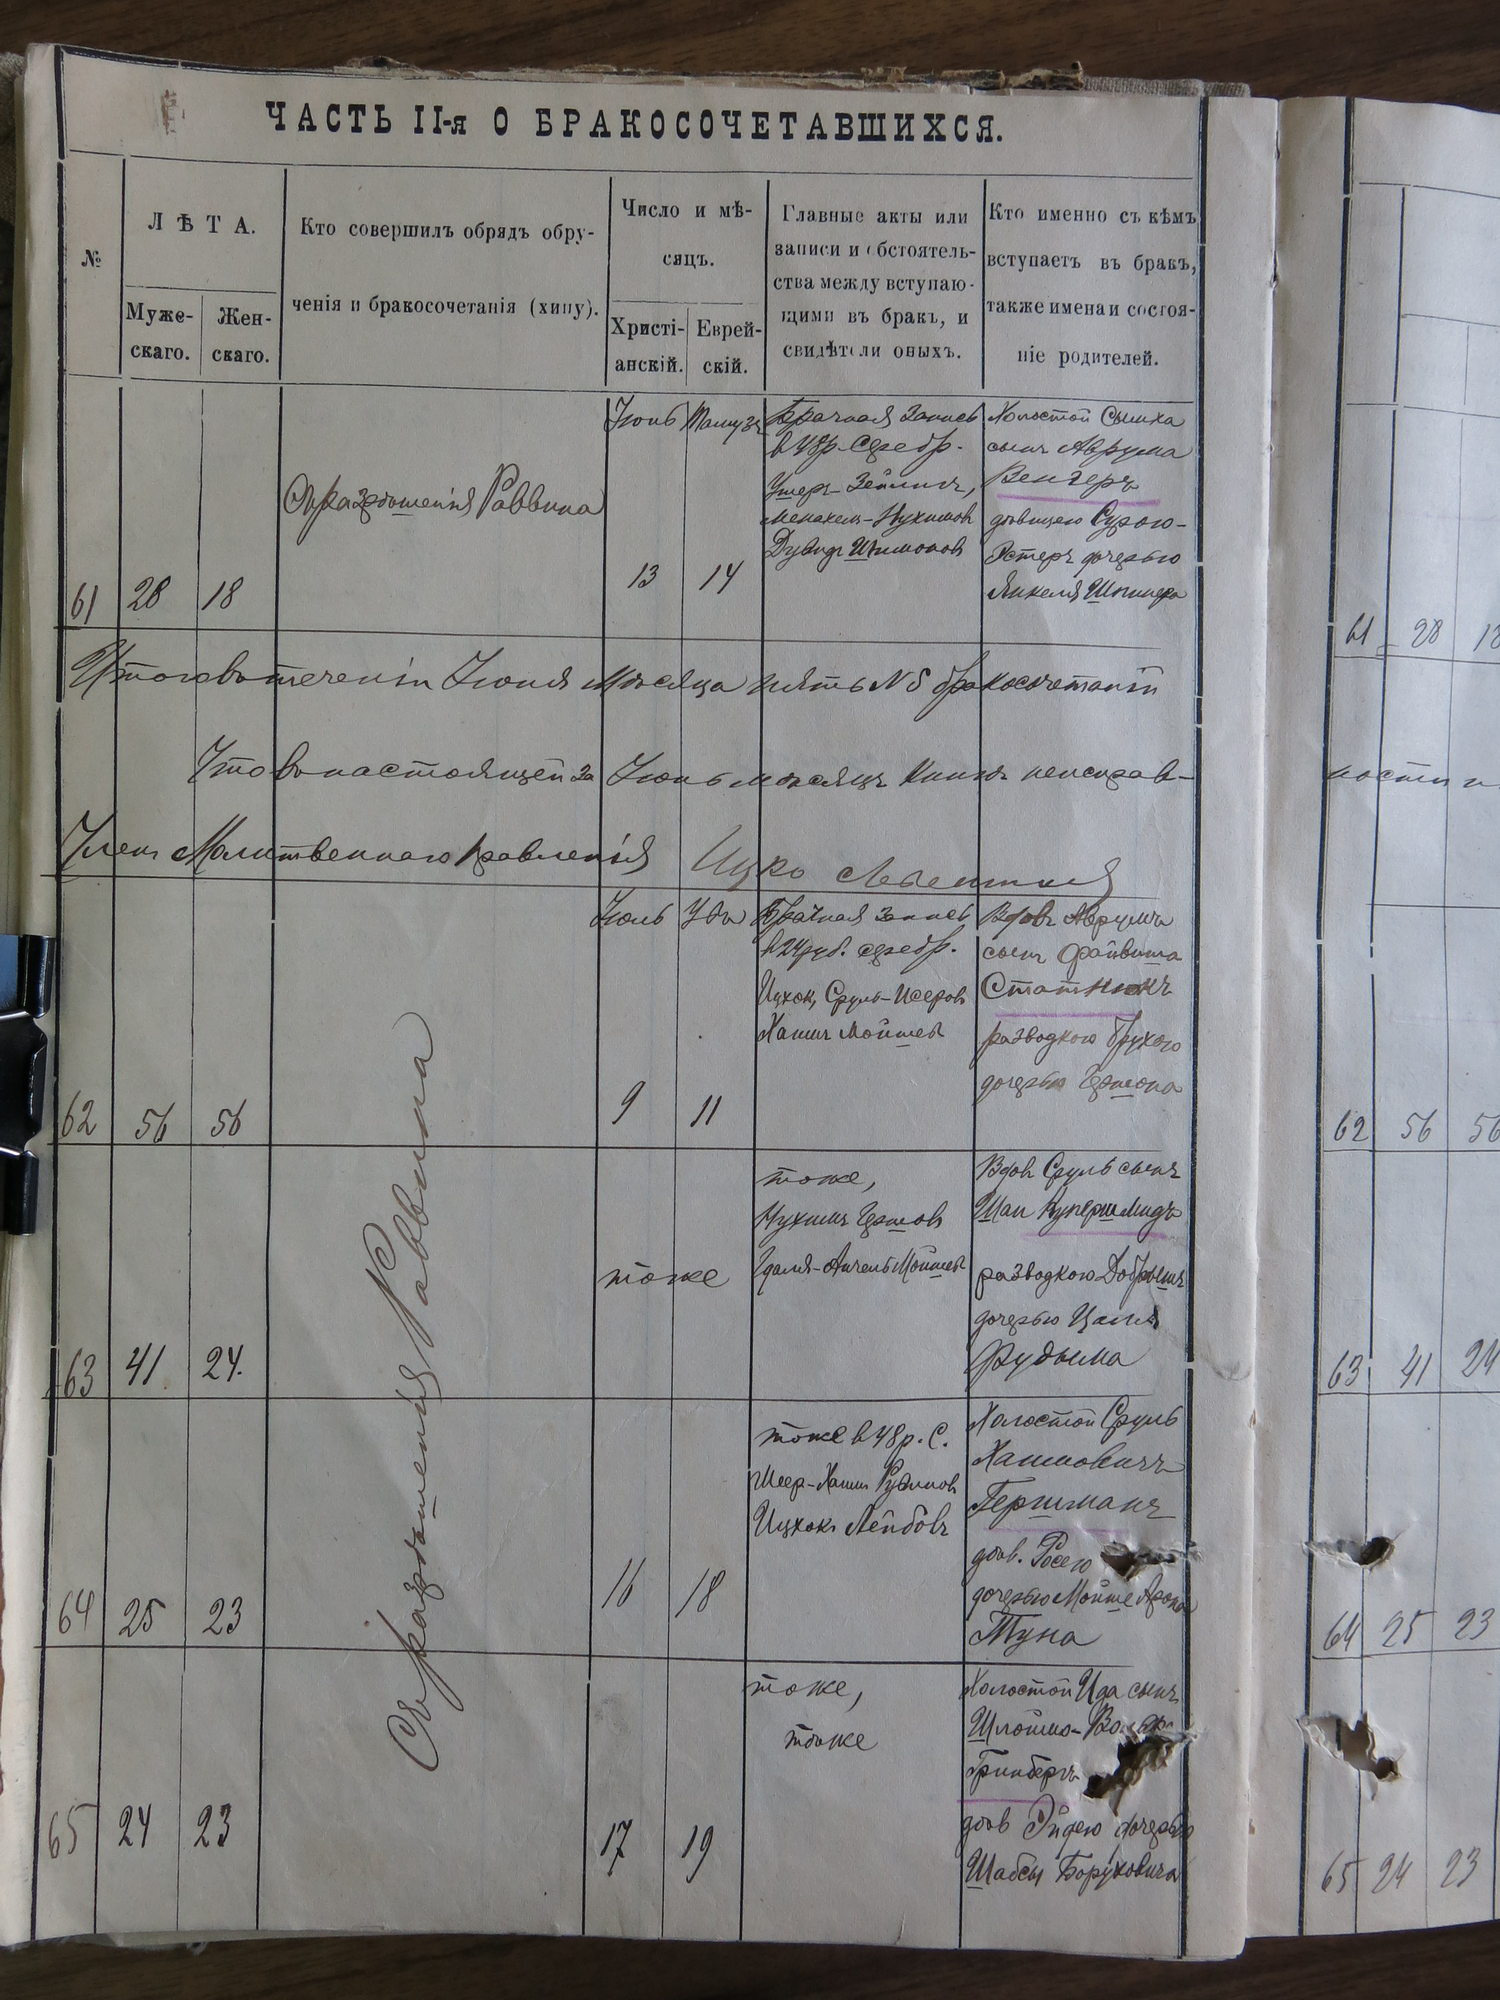 ЧАСТЬ II-я О БРАКОСОЧЕТАВШИХСЯ.
№
ЛѢТА.
Муже-
скаго.
Жен-
скаго.
Кто совершилъ обрядъ обру-
ченія и бракосочетанія (хипу).
Число и мѣ-
сяцъ.
Христі-
анскій.
Еврей-
скій.
Главные акты или
записи и обстоятель-
ства между вступаю-
щими въ бракъ, и
свидѣтели оныхъ.
Кто именно съ кѣмъ
вступаетъ въ бракъ,
также имена и состоя-
ніе родителей.
61
28
18
Съ разрѣшенія Раввина
Іюнь
13
Тамузъ
14
Брачная Запись
в 48р. серебр.
Менахемъ-Нухимовъ
Дувидъ Шимоновъ
Холостой Сымха
сынъ Аврума
Венгеръ
дѣвицею Сурою-
Эстеръ дочерью
Янкеля Шпинера
Итого въ теченіи Іюня Мѣсяца пять № 5 бракосочетаній
Что въ настоящей за Іюнь мѣсяцъ Книгѣ неисправ-
Членъ Молитвеннаго Правленія Ицко
62
56
56
Съ разрѣшенія Раввина
Іюль
9
11
Брачная Запись
в 24 руб. серебр.
Ицхокъ, Сруль-Исеровъ
Хаимъ Мойшев
Вдовъ Аврумъ
сынъ Файвиша
Статникъ
разводкою Брухою
дочерью Гершона
63
41
24.
тоже
тоже,
Нухимъ Гершовъ
Вдов Сруль сынъ
Шаи Купершмидъ
разводкою Добрышъ
дочерью
Рудыма
64
25
23
16
18
тоже в 48 р. С.
Ицхокъ Лейбовъ
Холостой Сруль
Хаимовичъ
Гершманъ
дѣв. Росею
дочерью Мойше Арона
Туна
65
24
23
17
19
тоже,
тоже
Холостой Ида сынъ
Шлоймо-
Гринбергъ
дѣв Эйдею дочерью
Шабсы Боруховича
61
28
ности и
62
56
56
63
41
24
64
25
23
65
24
23